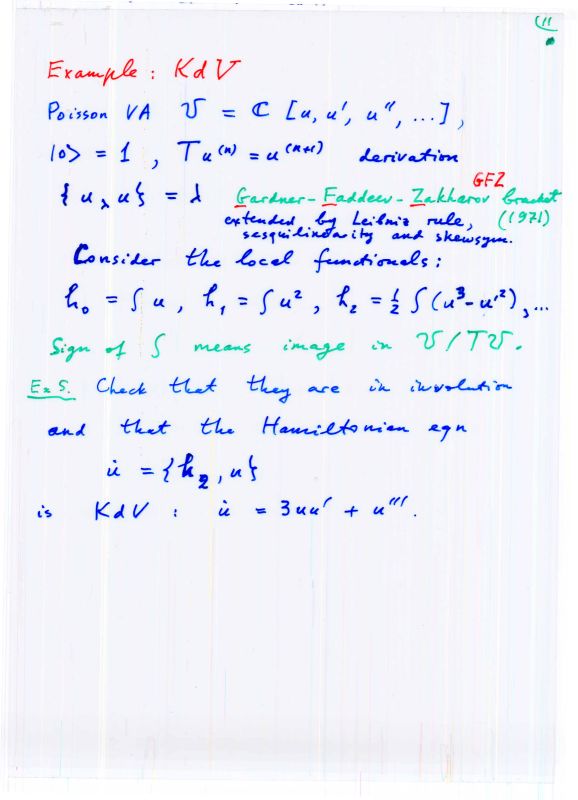 11
Example : KdV
Poisson VA 𝒱 = ℂ [u, u', u'', ...],
|0> = 1 , T u⁽ⁿ⁾ = u⁽ⁿ⁺¹⁾ derivation
GFZ
{ u_λ u} = λ Gardner-Faddeev-Zakharov bracket
extended by Leibniz rule, (1971)
sesquilinearity and skewsym.
Consider the local functionals:
h₀ = ∫ u , h₁ = ∫ u² , h₂ = ½ ∫ (u³ - u'²), ...
Sign of ∫ means image in 𝒱/T𝒱.
Ex 5. Check that they are in involution
and that the Hamiltonian eqn
u̇ = {h₂, u}
is KdV : u̇ = 3uu' + u'''.